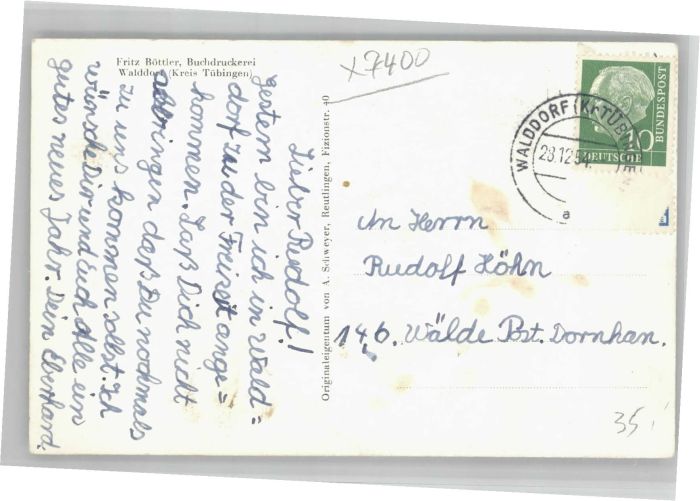 Fritz Böttler, Buchdruckerei
Walddorf (Kreis Tübingen)
x7400
Lieber Rudolf!
gestern bin ich in Wald=
dorf zu der Freizeit ange=
kommen. Laß Dich nicht
abbringen daß Du nochmals
zu uns kommen sollst. Ich
wünsche Dir und Euch Alle ein
gutes neues Jahr. Dein Eberhard.
Originaleigentum von A. Schweyer, Reutlingen, Fizionstr. 40
WALDDORF (Kr TÜBINGEN)
28.12.54.
a
10
DEUTSCHE
BUNDESPOST
An Herrn
Rudolf Höhn
146. Wälde Post. Dornhan.
35.